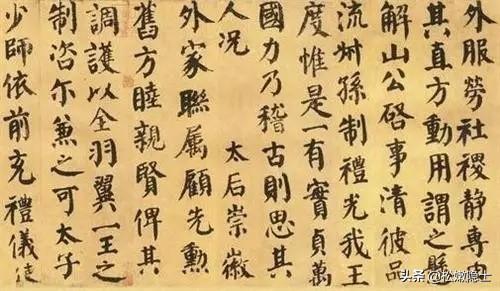 外服勞社稷靜專由
其直方動用謂之懸
解山公啓事清彼品
流叔孫制禮光我王
度惟是一有實貞萬
國力乃稽古則思其
人況 太后崇徽
外家聯屬顧先勳
舊方睦親賢俾其
調護以全羽翼一王之
制咨尔兼之可太子
少師依前充禮儀使
头条 @松嫩隐士